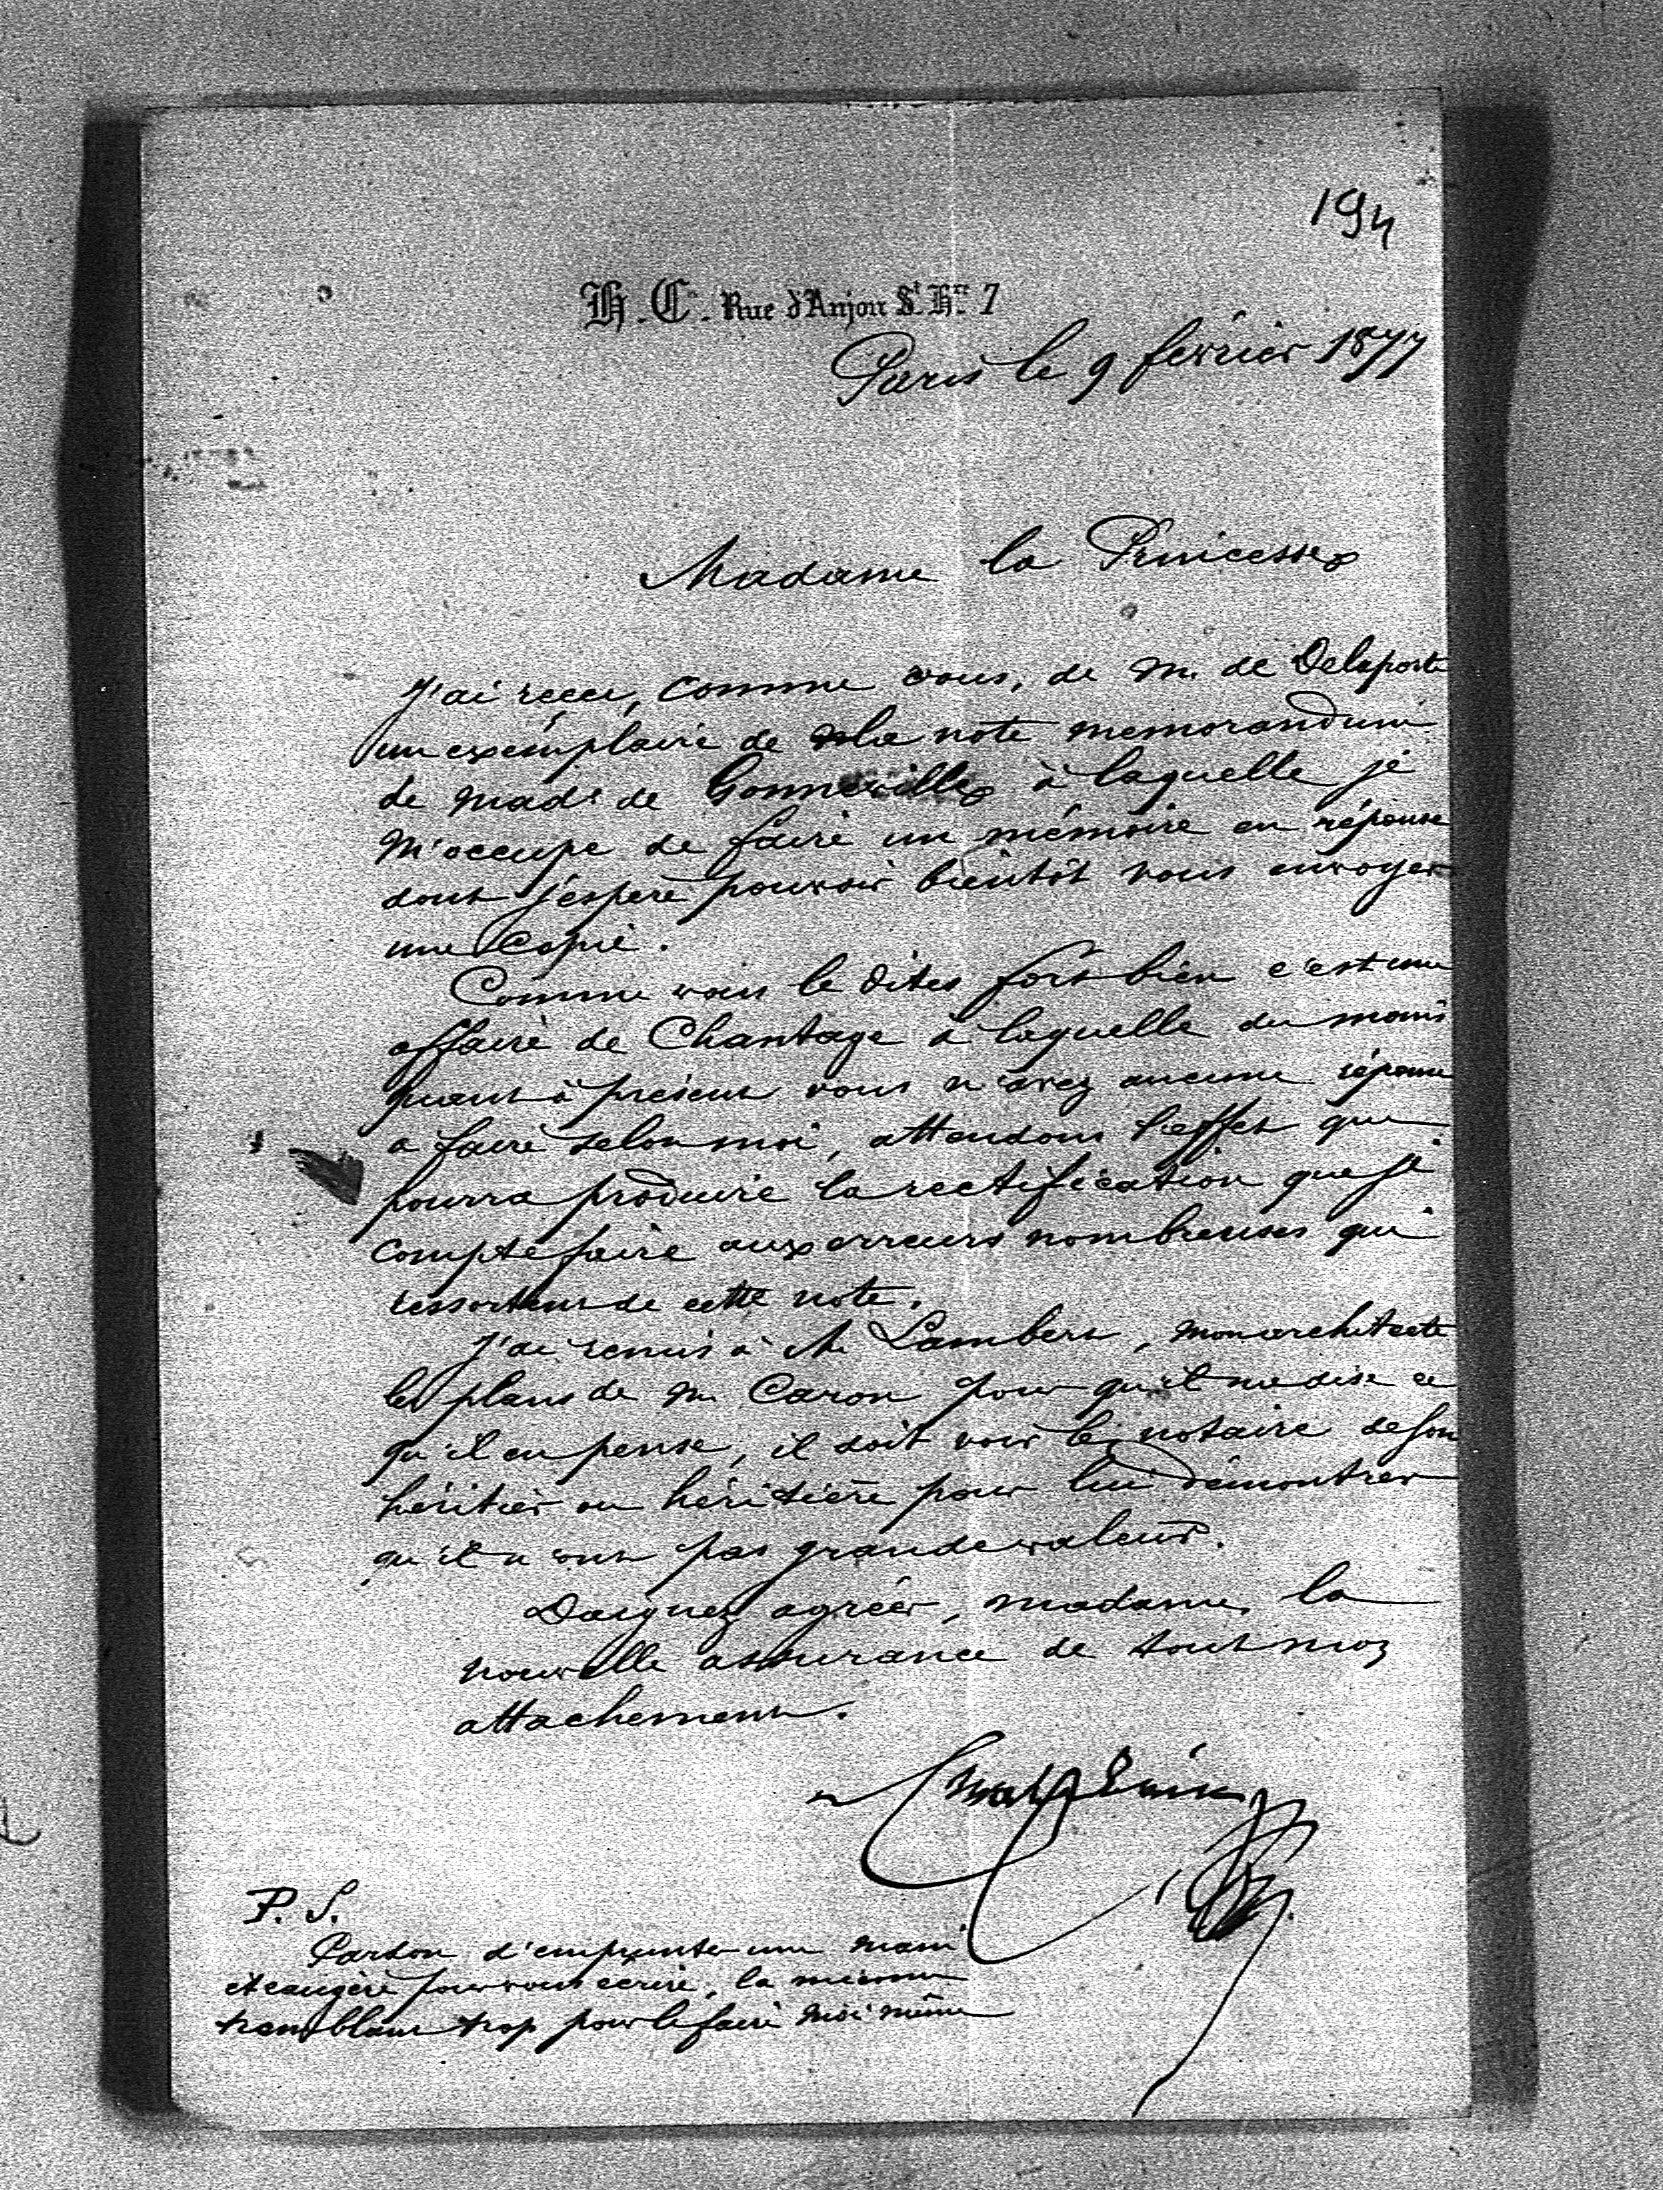 194
H. C. Rue d'Anjou St. Hré 7
Paris le 9 février 1877
Madame la Princesse
J'ai recu, comme vous, de M. de Delaporte
un exémplaire de la note memorandum
de Made de Gonneville à laquelle je
m'occupe de faire un mémoire en réponse
dont j'espere pouvoir bientôt vous envoyer
une copie.
Comme vous le dites fort bien c'est une
affaire de Chantage à laquelle du moins
quant à présent vous n'avez aucune réponse
a faire selon moi, attendons l'effet que
pourra produire la rectification que je
compte faire aux erreurs nombreuses qui
ressortent de cette note.
J'ai remis à M. Lambert, mon architecte
les plans de M. Caron pour qu'il me dise ce
qu'il en pense, il doit voir le notaire de son
héritier ou héritière pour lui démontrer
qu'il n'ont pas grande valeur.
Daignez agréer, madame, la
nouvelle assurance de tout mon
attachement.
P. S.
Pardon d'emprunter une main
étrangère pour vous écrire, la mienne
tremblant trop pour le faire moi même